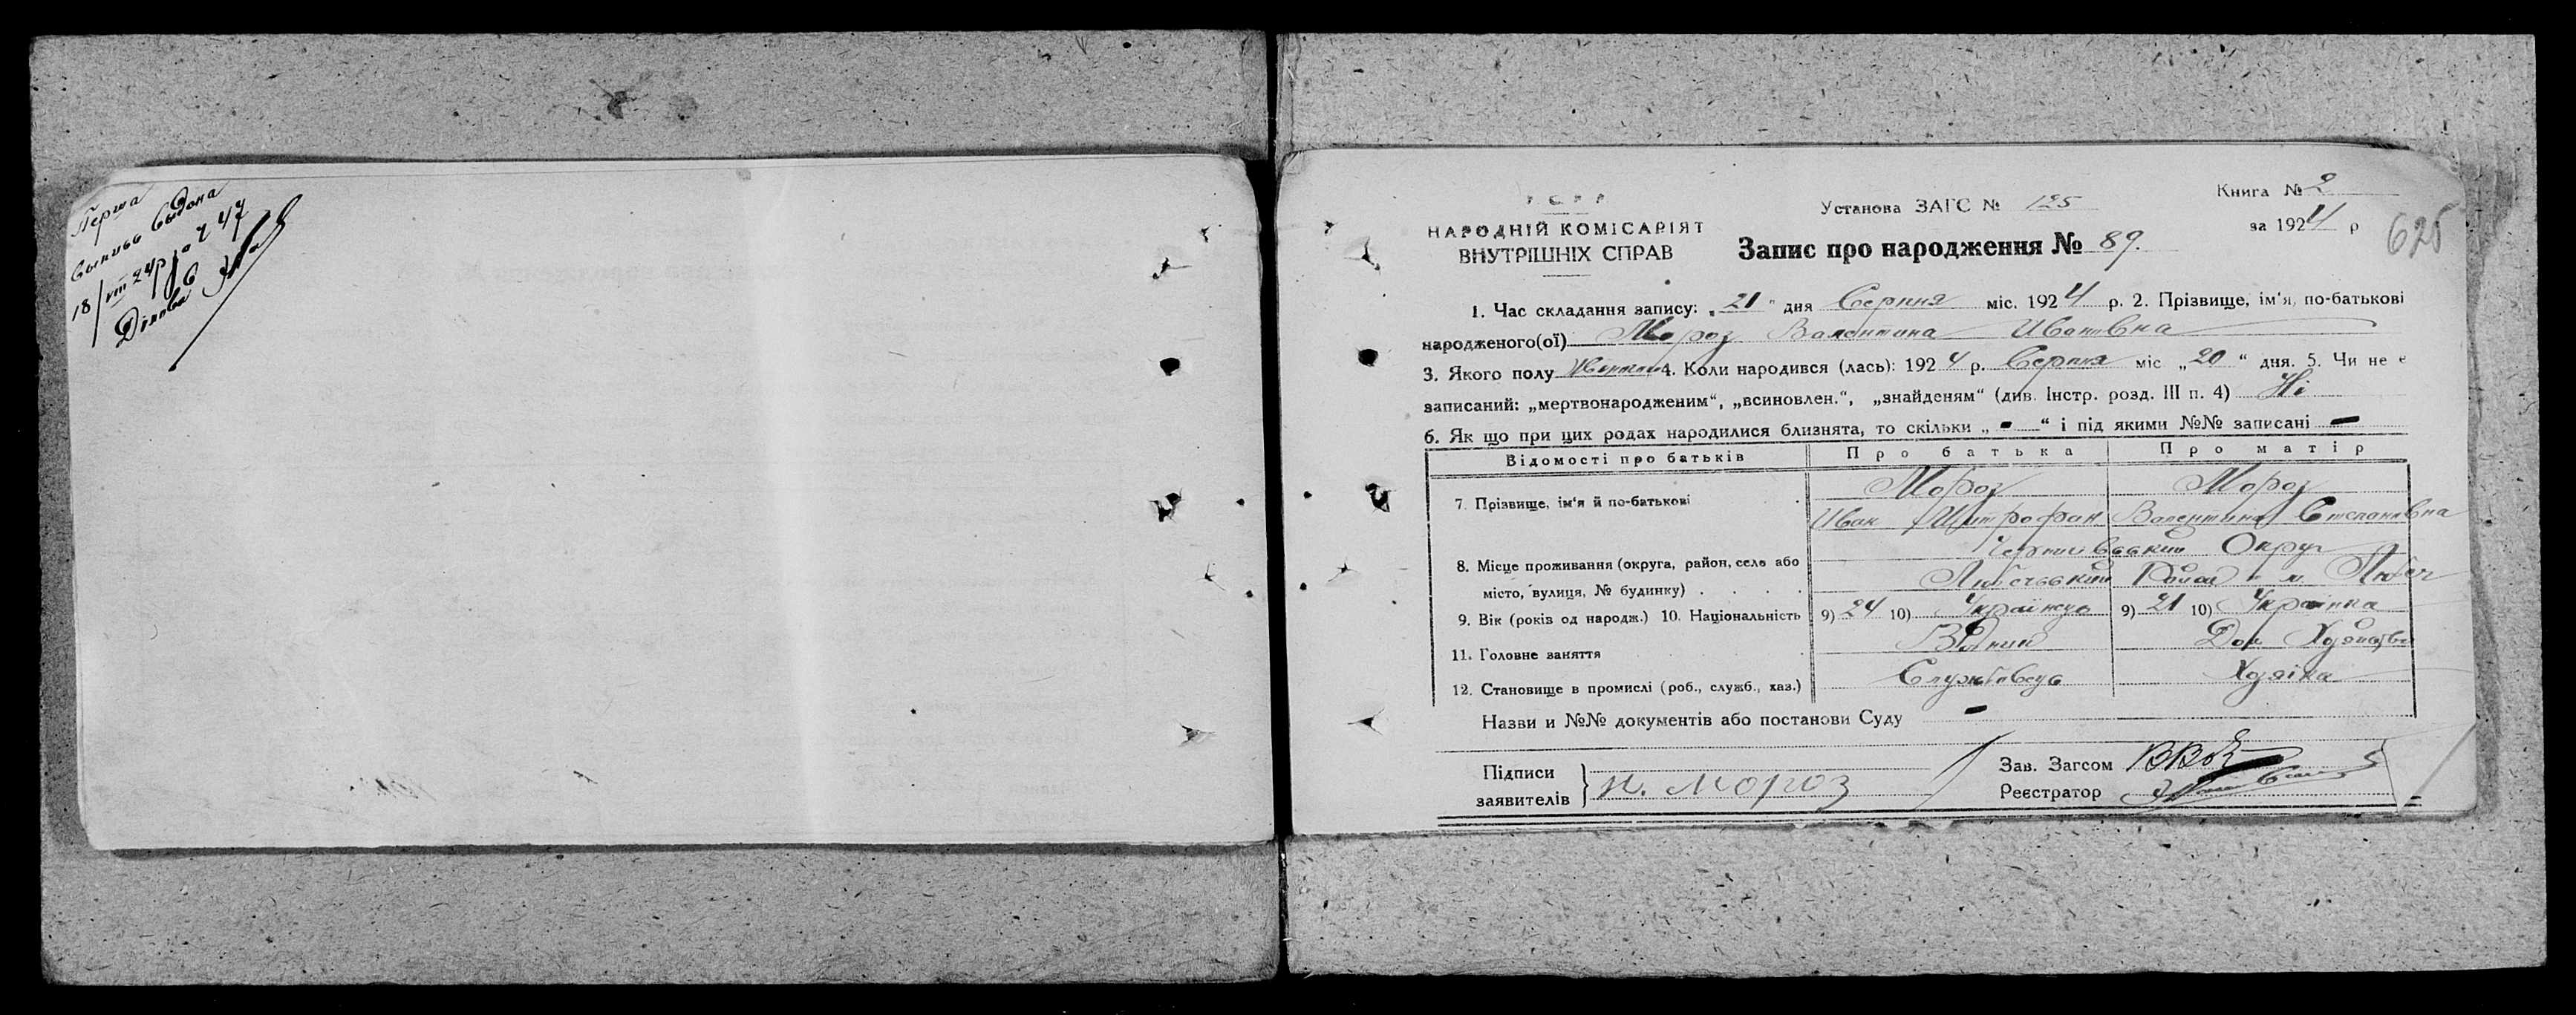 Перша
выпись выдана
18/VIII 24 р за Ч 47
У С Р Р
НАРОДНІЙ КОМІСАРІЯТ
ВНУТРІШНІХ СПРАВ
Установа ЗАГС № 125
Книга № 2
за 1924 р
625
Запис про народження № 89.
1. Час складання запису: „21“ дня Серпня міс. 1924 р. 2. Прізвище, ім'я, по-батькові
народженого(ої) Мороз Валентина Ивановна
3. Якого полу 4. Коли народився (лась): 1924 р. Серпня міс „20“ дня. 5. Чи не є
записаний: „мертвонародженим“, „всиновлен.“, „знайденям“ (див. Інстр. розд. III п. 4) Ні
6. Як що при цих родах народилися близнята, то скільки „-“ і під якими №№ записані -
Відомості про батьків Про батька Про матір
7. Прізвище, ім'я й по-батькові Мороз Мороз
Иван Митрофан Валентина Степановна
8. Місце проживання (округа, район, село або Округ
місто, вулиця, № будинку) Любечський Район м. Любеч
9. Вік (років од народж.) 10. Національність 9) 24 10) Українець 9) 21 10) Українка
11. Головне заняття Дом Хозяйство
12. Становище в промислі (роб., служб., хаз.) Службовець Хозяйка
Назви и №№ документів або постанови Суду -
Підписи
заявителів И. Мороз
Зав. Загсом
Реєстратор